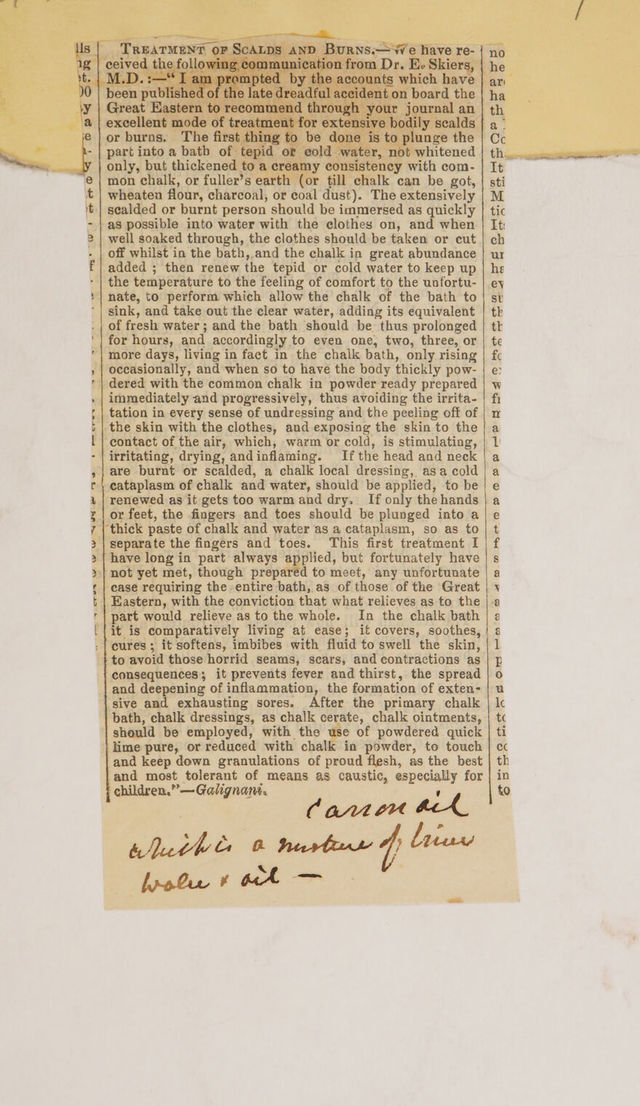 TREATMENT OF SCALDS AND BURNS.—We have re-
ceived the following communication from Dr. E. Skiers,
M.D. :—“ I am prompted by the accounts which have
been published of the late dreadful accident on board the
Great Eastern to recommend through your journal an
excellent mode of treatment for extensive bodily scalds
or burns. The first thing to be done is to plunge the
part into a bath of tepid or cold water, not whitened
only, but thickened to a creamy consistency with com-
mon chalk, or fuller’s earth (or till chalk can be got,
wheaten flour, charcoal, or coal dust). The extensively
scalded or burnt person should be immersed as quickly
as possible into water with the clothes on, and when
well soaked through, the clothes should be taken or cut
off whilst in the bath, and the chalk in great abundance
added ; then renew the tepid or cold water to keep up
the temperature to the feeling of comfort to the unfortu-
nate, to perform which allow the chalk of the bath to
sink, and take out the clear water, adding its equivalent
of fresh water ; and the bath should be thus prolonged
for hours, and accordingly to even one, two, three, or
more days, living in fact in the chalk bath, only rising
occasionally, and when so to have the body thickly pow-
dered with the common chalk in powder ready prepared
immediately and progressively, thus avoiding the irrita-
tation in every sense of undressing and the peeling off of
the skin with the clothes, and exposing the skin to the
contact of the air, which, warm or cold, is stimulating,
irritating, drying, and inflaming. If the head and neck
are burnt or scalded, a chalk local dressing, as a cold
cataplasm of chalk and water, should be applied, to be
renewed as it gets too warm and dry. If only the hands
or feet, the fingers and toes should be plunged into a
thick paste of chalk and water as a cataplasm, so as to
separate the fingers and toes. This first treatment I
have long in part always applied, but fortunately have
not yet met, though prepared to meet, any unfortunate
case requiring the entire bath, as of those of the Great
Eastern, with the conviction that what relieves as to the
part would relieve as to the whole. In the chalk bath
it is comparatively living at ease ; it covers, soothes,
cures ; it softens, imbibes with fluid to swell the skin,
to avoid those horrid seams, scars, and contractions as
consequences ; it prevents fever and thirst, the spread
and deepening of inflammation, the formation of exten-
sive and exhausting sores. After the primary chalk
bath, chalk dressings, as chalk cerate, chalk ointments,
should be employed, with the use of powdered quick
lime pure, or reduced with chalk in powder, to touch
and keep down granulations of proud flesh, as the best
and most tolerant of means as caustic, especially for
children.”—Galignani.
Carron oil
which is a mixture of lime
water & oil —